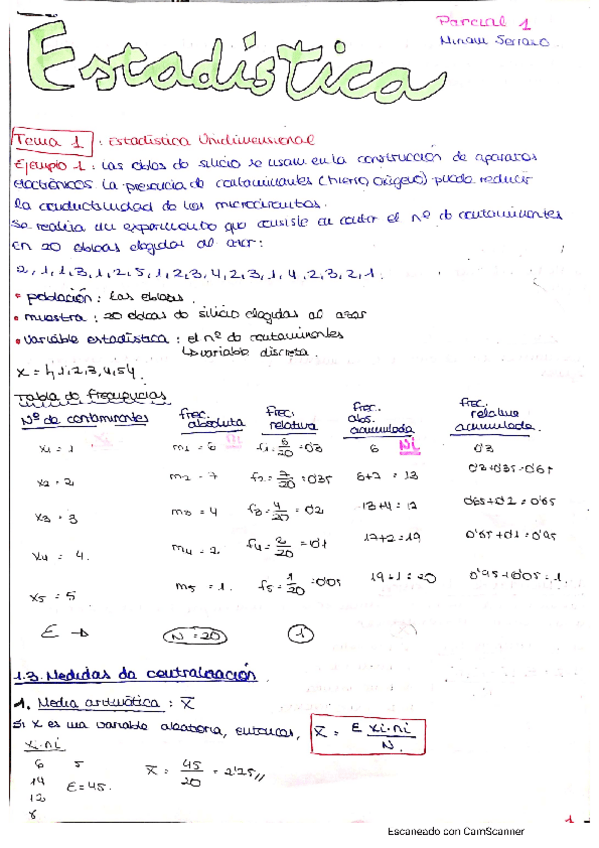 Parcial 1
Miriam Serrano
Estadística
Tema 1 : Estadística Unidimensional
Ejemplo 1 : Las oblas de silicio se usan en la construcción de aparatos
electrónicos la presencia de contaminantes (hierro, oxígeno) puede reducir
la conductividad de los microcircuitos.
Se realiza un experimento que consiste en contar el nº de contaminantes
en 20 obleas elegidas al azar:
2, 1, 1, 3, 1, 2, 5, 1, 2, 3, 4, 2, 3, 1, 4, 2, 3, 2, 1.
• población : Las obleas.
• muestra : 20 obleas de silicio elegidas al azar
• variable estadística : el nº de contaminantes
↳ variable discreta.
X = {1,2,3,4,5}.
Tabla de frecuencias
Nº de contaminantes Frec. absoluta Frec. relativa Frec. abs. acumulada Frec. relativa acumulada.
x1 = 1 xi m1 = 6 ni f1 = 6/20 = 0'3 6 Ni 0'3
x2 = 2 m2 = 7 f2 = 7/20 = 0'35 6+7 = 13 0'3+0'35=0'65
x3 = 3 m3 = 4 f3 = 4/20 = 0'2 13+4 = 17 0'65+0'2 = 0'85
x4 = 4. m4 = 2. f4 = 2/20 = 0'1 17+2 = 19 0'85+0'1 = 0'95
x5 = 5 m5 = 1. f5 = 1/20 = 0'05 19+1 = 20 0'95+0'05 = 1.
E → N = 20 1
1.3. Medidas de centralización
1. Media aritmética : x̄
Si X es una variable aleatoria, entonces, x̄ = E xi·ni / N.
xi·ni
6 5
14 E = 45. x̄ = 45/20 = 2'25 //
12
8
1
Escaneado con CamScanner